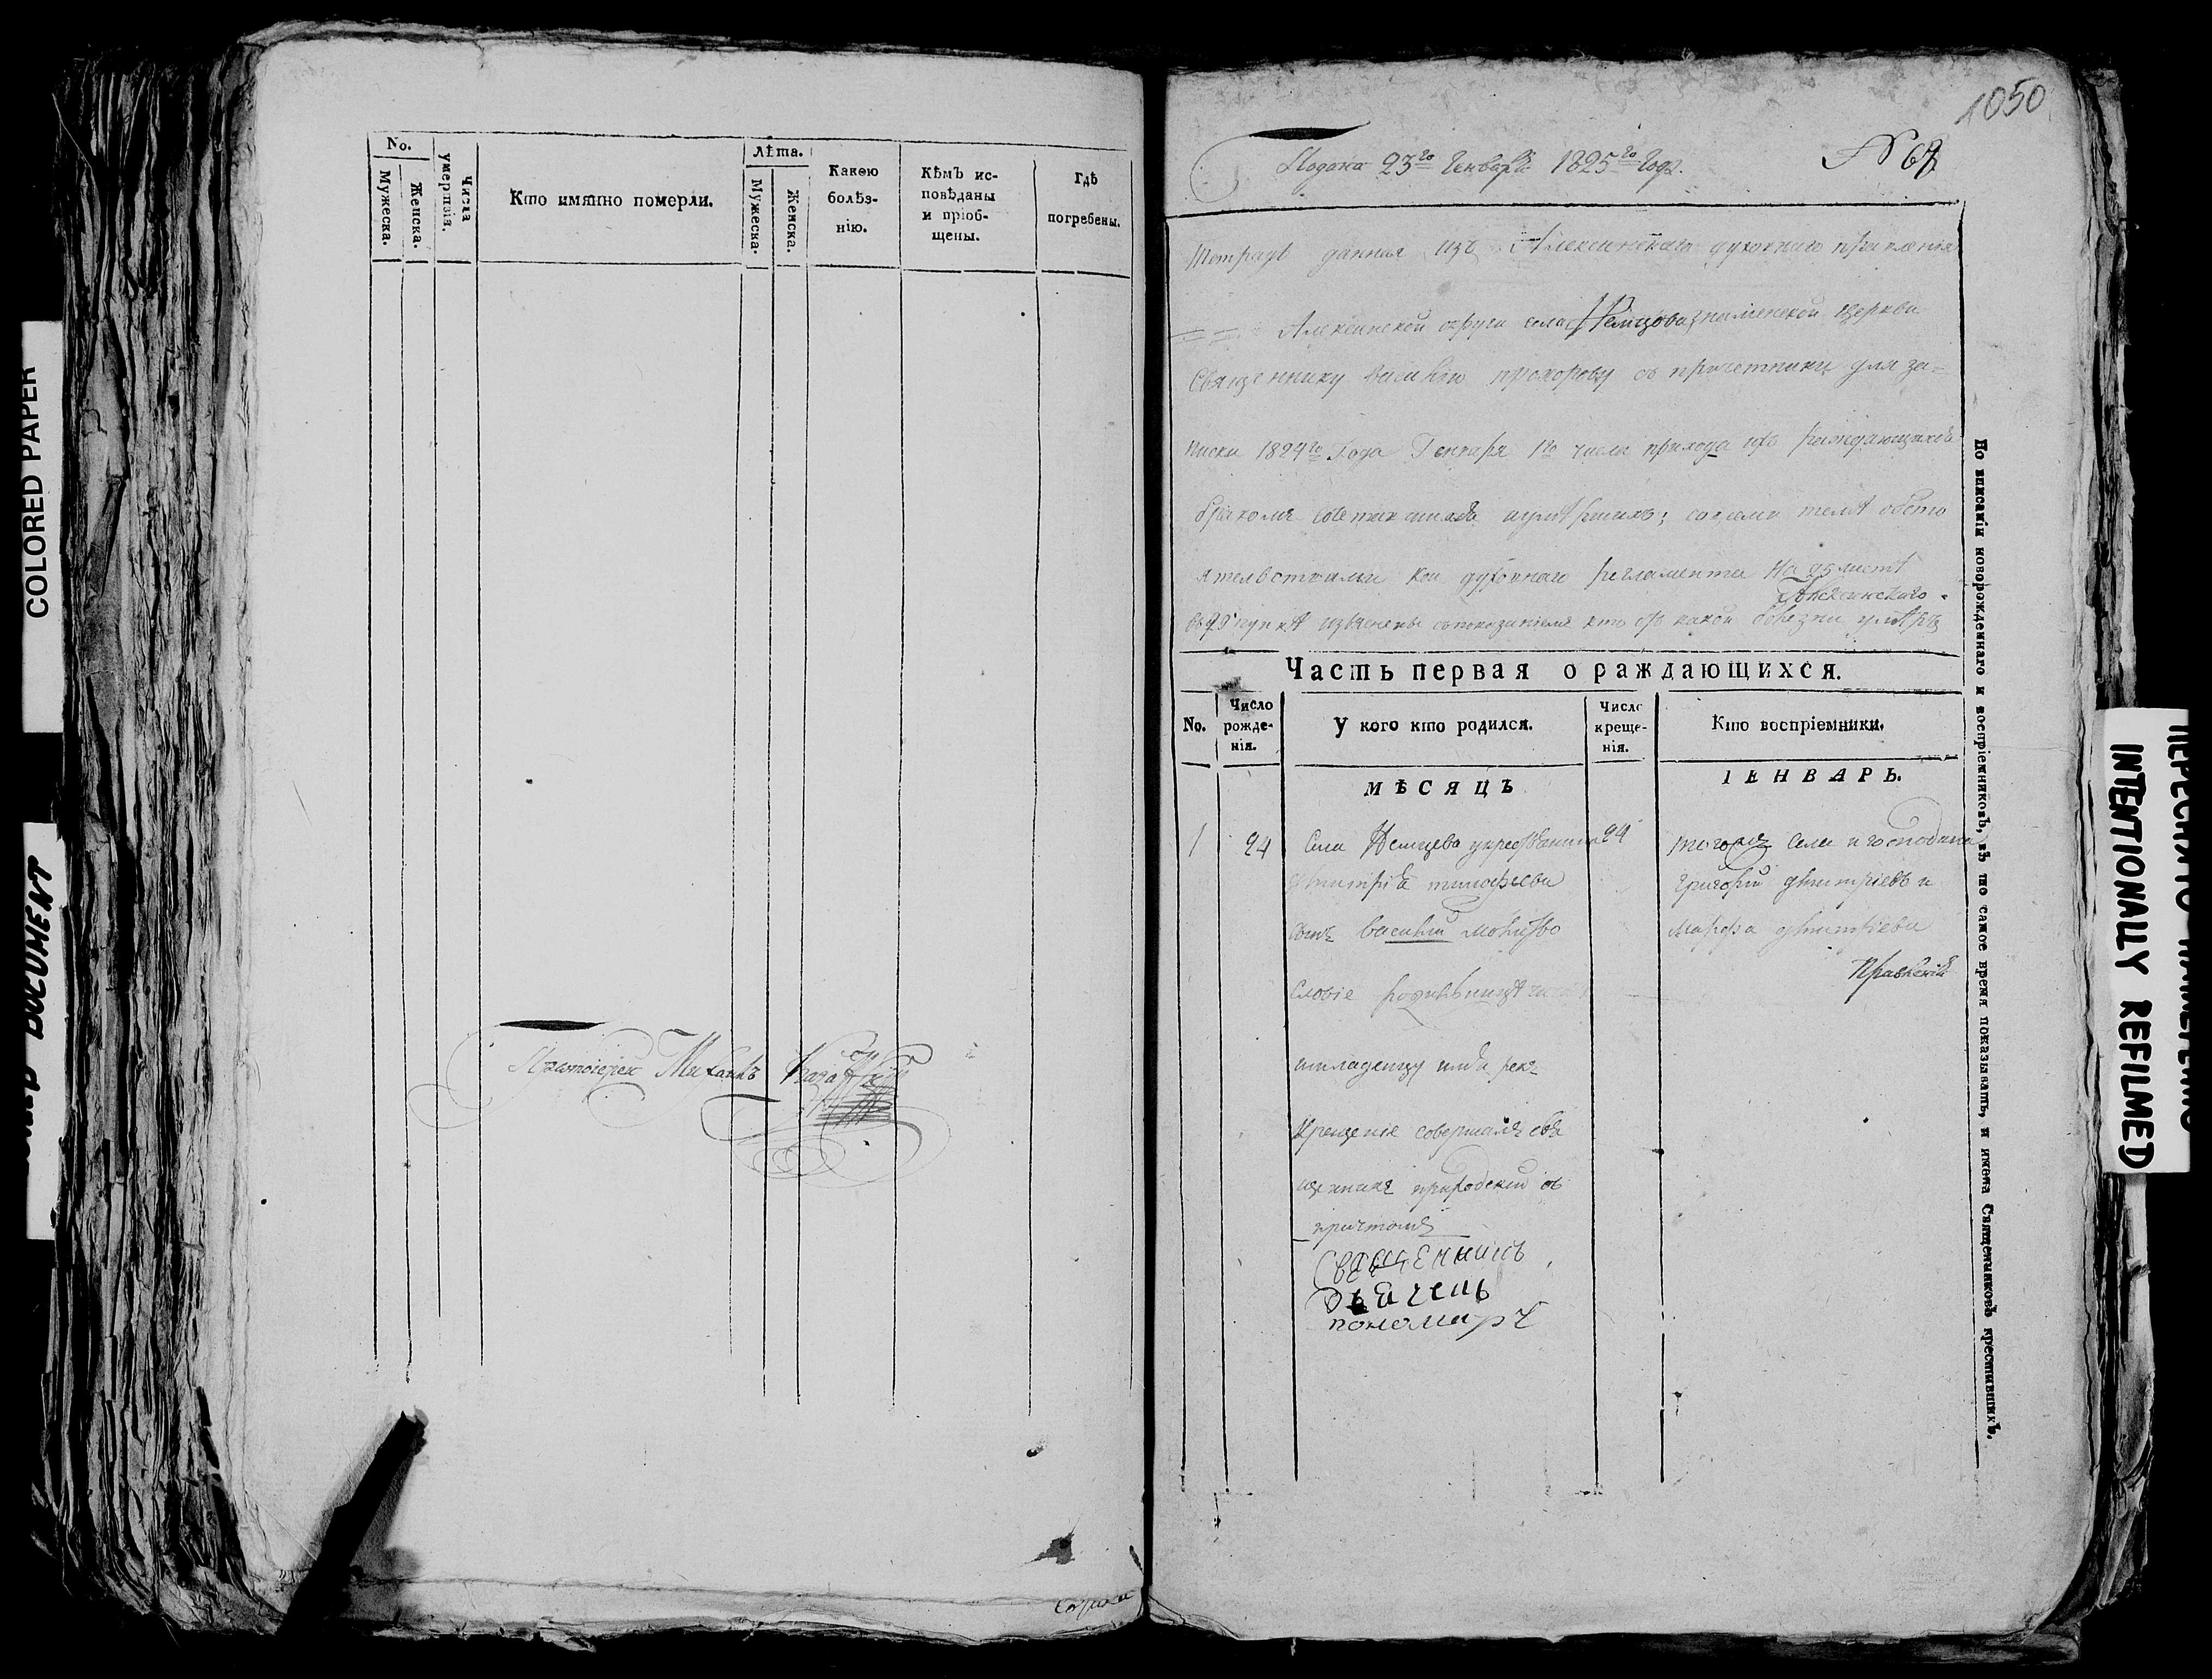 COLORED PAPER
DOCUMENT
No.
Мужеска.
Женска.
Числа
умертвія.
Кто имянно померли.
Лѣта.
Мужеска.
Женска.
Какою
болѣз-
нію.
Кѣмъ ис-
повѣданы
и пріоб-
щены.
Гдѣ
погребены.
Протоіерей Михаилъ
1050
Подана 23го Генваря 1825го года.
№ 67
Тетрадь данная изъ Алексинскаго духовнаго правленія
Алексинской округи села Немцова знаменской церкви
Священнику Василью прохорову съ причетники для за=
писки 1824го Года Генваря 1го числа прихода ихъ раждающихся
бракомъ сочетавшихся и умершихъ; со всеми теми обсто
ятельствами кои духовнаго регламента на листѣ
Алексинскаго
въ пунктѣ изъяснены съ показаніемъ кто отъ какой болезни умѣръ
Часть первая о раждающихся.
No.
Число
рожде-
нія.
У кого кто родился.
Число
креще-
нія.
Кто воспріемники.
МѢСЯЦЪ
ІЕНВАРЬ.
1
24
Села Немцева у крестьянина
Дмитрія тимофеева
сынъ василий молитво
словіе родильницѣ
и младенцу имя рекъ
Крещеніе совершалъ свя
щенникъ приходский съ
причтомъ
Священникъ
дьячекъ
пономарь
24
тогожъ села и господина
григорий дмитриевъ и
марфа дмитриева
Правленія
По вписаніи новорожденнаго и воспріемниковъ, въ то самое время показывать, и имена Священниковъ крестившихъ.
ПЕРЕСНЯТО НАМЕРЕННО
INTENTIONALLY REFILMED